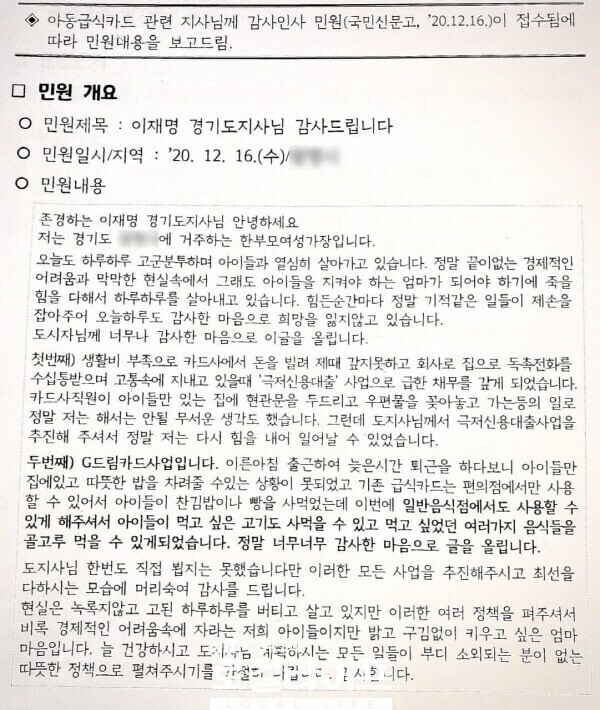 ◈ 아동급식카드 관련 지사님께 감사인사 민원(국민신문고, ’20.12.16.)이 접수됨에
따라 민원내용을 보고드림.
□ 민원 개요
○ 민원제목 : 이재명 경기도지사님 감사드립니다
○ 민원일시/지역 : ’20. 12. 16.(수)/
○ 민원내용
존경하는 이재명 경기도지사님 안녕하세요
저는 경기도 에 거주하는 한부모여성가장입니다.
오늘도 하루하루 고군분투하며 아이들과 열심히 살아가고 있습니다. 정말 끝이없는 경제적인
어려움과 막막한 현실속에서 그래도 아이들을 지켜야 하는 엄마가 되어야 하기에 죽을
힘을 다해서 하루하루를 살아내고 있습니다. 힘든순간마다 정말 기적같은 일들이 제손을
잡아주어 오늘하루도 감사한 마음으로 희망을 잃지않고 있습니다.
도시자님께 너무나 감사한 마음으로 이글을 올립니다.
첫번째) 생활비 부족으로 카드사에서 돈을 빌려 제때 갚지못하고 회사로 집으로 독촉전화를
수십통받으며 고통속에 지내고 있을때 '극저신용대출' 사업으로 급한 채무를 갚게 되었습니다.
카드사직원이 아이들만 있는 집에 현관문을 두드리고 우편물을 꽂아놓고 가는등의 일로
정말 저는 해서는 안될 무서운 생각도 했습니다. 그런데 도지사님께서 극저신용대출사업을
추진해 주셔서 정말 저는 다시 힘을 내어 일어날 수 있었습니다.
두번째) G드림카드사업입니다. 이른아침 출근하여 늦은시간 퇴근을 하다보니 아이들만
집에있고 따뜻한 밥을 차려줄 수있는 상황이 못되었고 기존 급식카드는 편의점에서만 사용
할 수 있어서 아이들이 찬김밥이나 빵을 사먹었는데 이번에 일반음식점에서도 사용할 수
있게 해주셔서 아이들이 먹고 싶은 고기도 사먹을 수 있고 먹고 싶었던 여러가지 음식들을
골고루 먹을 수 있게되었습니다. 정말 너무너무 감사한 마음으로 글을 올립니다.
도지사님 한번도 직접 뵙지는 못했습니다만 이러한 모든 사업을 추진해주시고 최선을
다하시는 모습에 머리숙여 감사를 드립니다.
현실은 녹록지않고 고된 하루하루를 버티고 살고 있지만 이러한 여러 정책을 펴주셔서
비록 경제적인 어려움속에 자라는 저희 아이들이지만 밝고 구김없이 키우고 싶은 엄마
마음입니다. 늘 건강하시고 도지사님 계획하시는 모든 일들이 부디 소외되는 분이 없는
따뜻한 정책으로 펼쳐주시기를
LOCAL LIFE